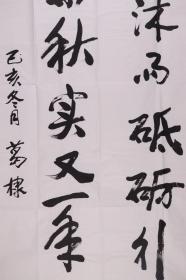 沐雨砥砺行
秋实又一年
己亥冬月 葛棣